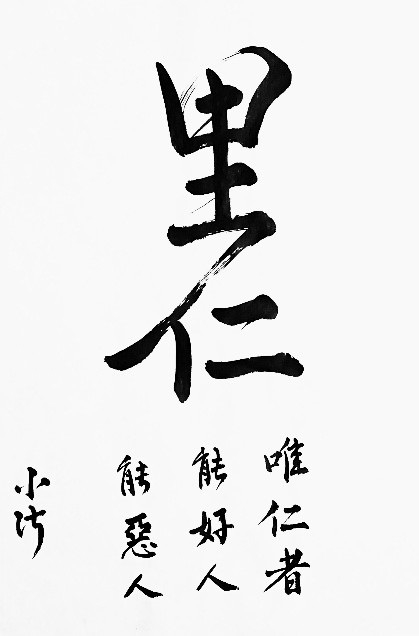 里仁
唯仁者
能好人
能惡人